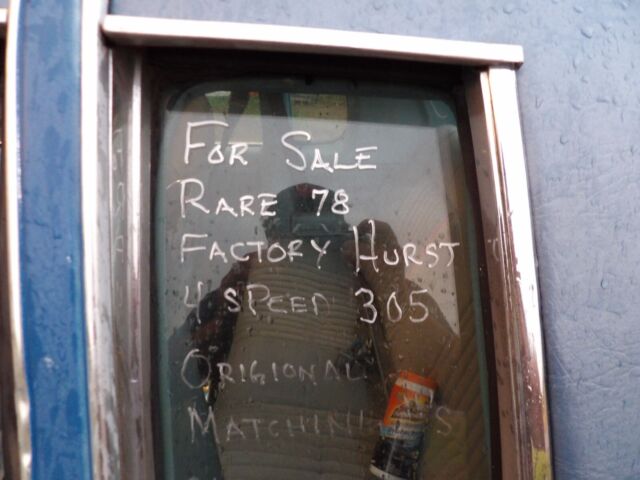 FOR SALE
RARE 78
FACTORY HURST
4 SPEED 305
ORIGIONAL